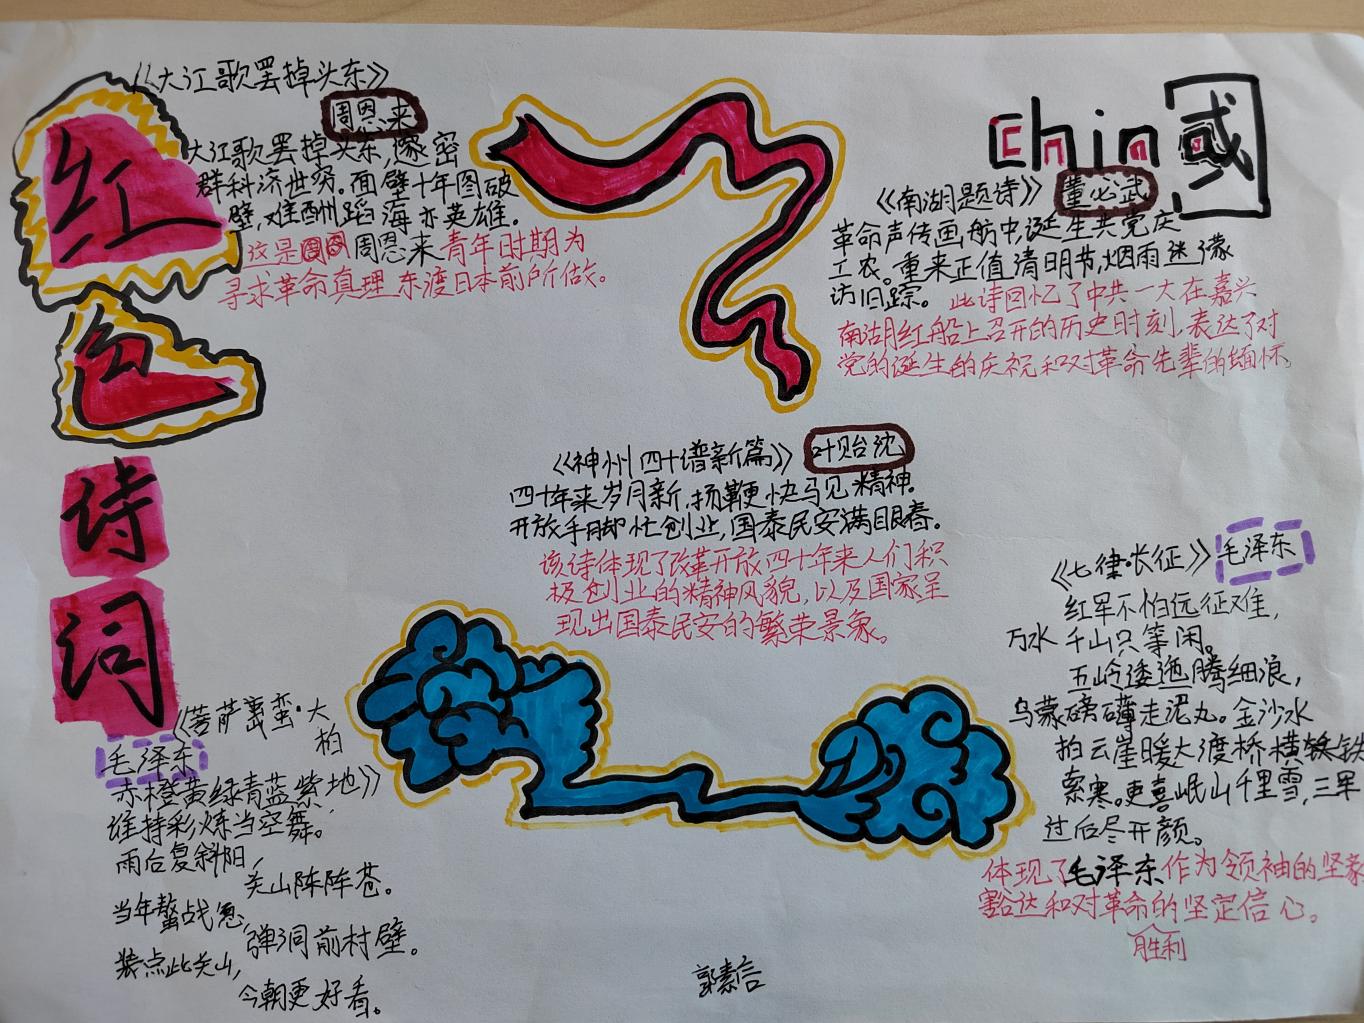 红
色
诗
词
《大江歌罢掉头东》
周恩来
大江歌罢掉头东,邃密
群科济世穷。面壁十年图破
壁,难酬蹈海亦英雄.
这是周恩来青年时期为
寻求革命真理东渡日本前所做。
China
國
《南湖题诗》 董必武
革命声传画舫中,诞生共党庆
工农。重来正值清明节,烟雨迷濛
访旧踪。 此诗回忆了中共一大在嘉兴
南湖红船上召开的历史时刻,表达了对
党的诞生的庆祝和对革命先辈的缅怀。
《神州四十谱新篇》 叶贻沈
四十年来岁月新,扬鞭快马见精神.
开放手脚忙创业,国泰民安满眼春.
该诗体现了改革开放四十年来人们积
极创业的精神风貌,以及国家呈
现出国泰民安的繁荣景象。
《七律·长征》 毛泽东
红军不怕远征难,
万水千山只等闲。
五岭逶迤腾细浪,
乌蒙磅礴走泥丸。金沙水
拍云崖暖大渡桥横铁
索寒。更喜岷山千里雪,三军
过后尽开颜。
体现了毛泽东作为领袖的坚毅
豁达和对革命的坚定信心。
胜利
《菩萨蛮·大
柏
地》
毛泽东
赤橙黄绿青蓝紫
谁持彩炼当空舞。
雨后复斜阳,
关山阵阵苍。
当年鏖战急,
弹洞前村壁。
装点此关山,
今朝更好看。
郭素信